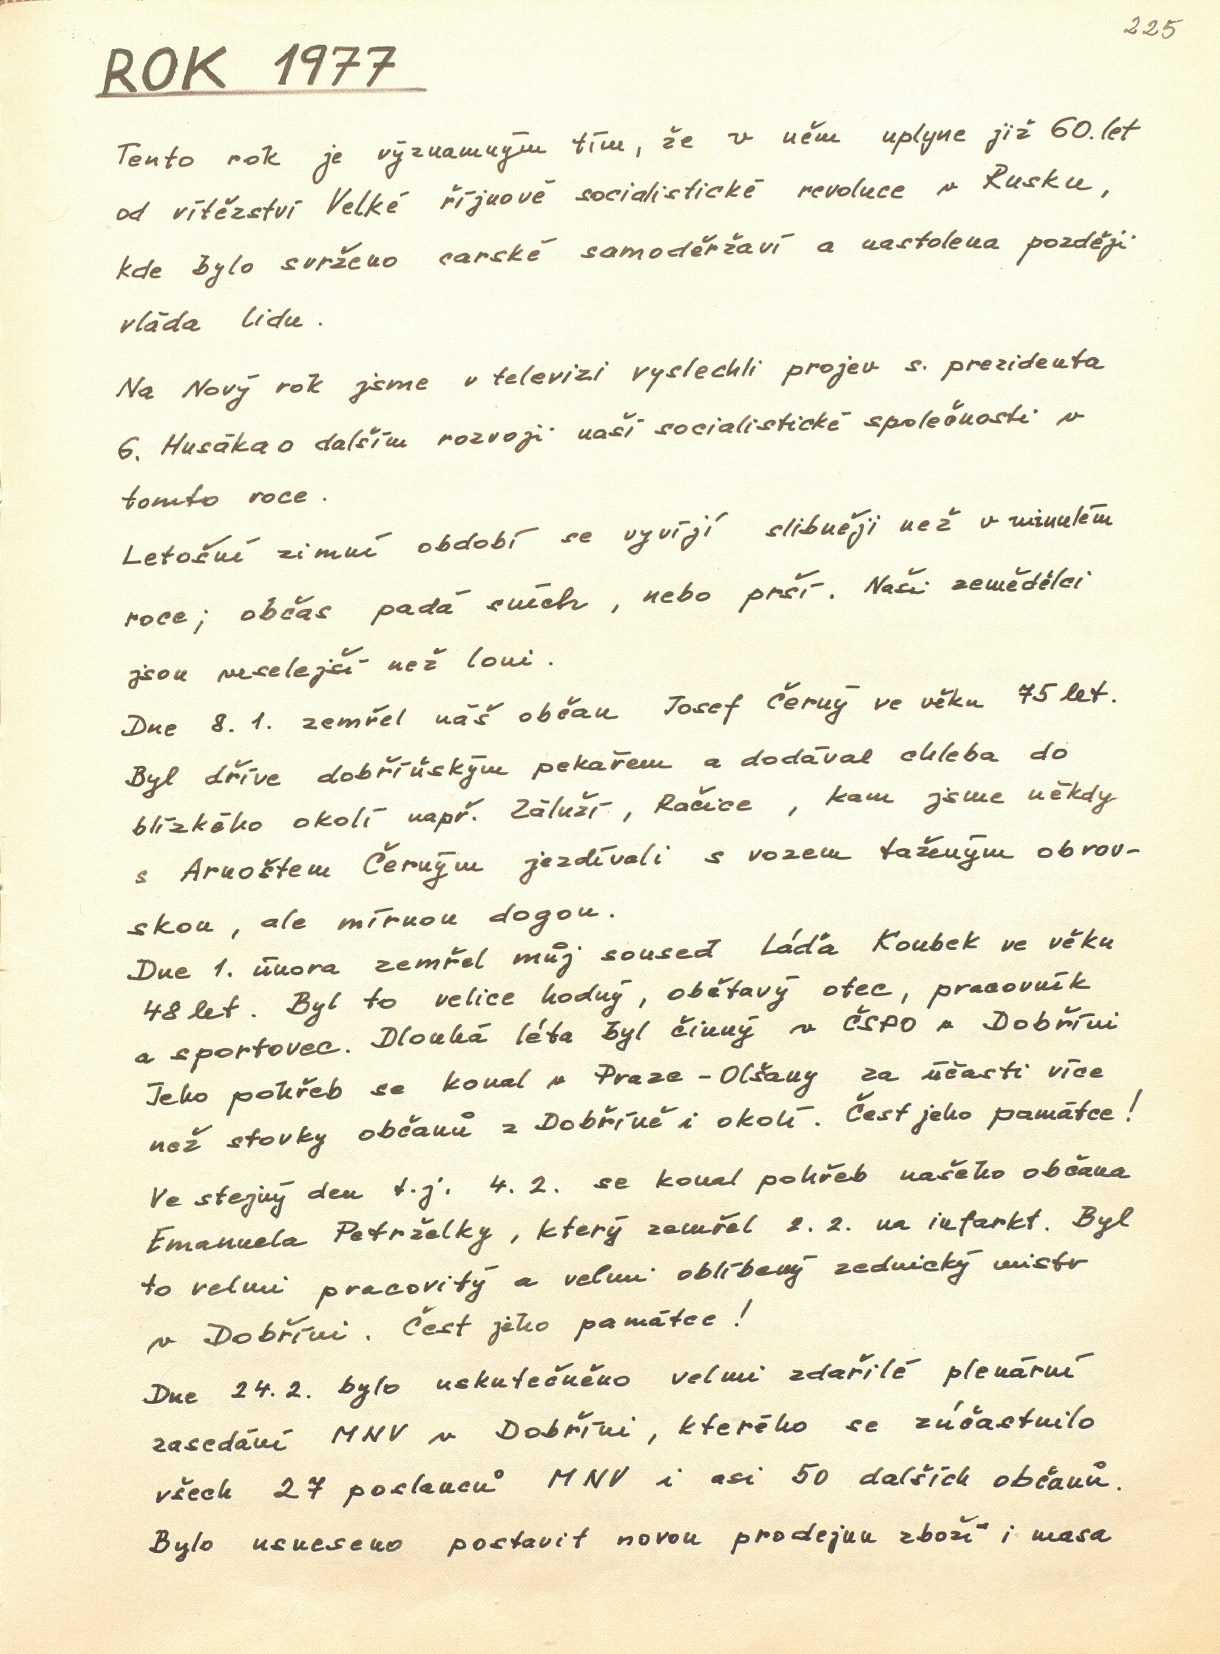 225
ROK 1977
Tento rok je významným tím, že v něm uplyne již 60. let
od vítězství Velké říjnové socialistické revoluce v Rusku,
kde bylo svrženo carské samoděržaví a nastolena později
vláda lidu.
Na Nový rok jsme v televizi vyslechli projev s. prezidenta
G. Husáka o dalším rozvoji naší socialistické společnosti v
tomto roce.
Letošní zimní období se vyvíjí slibněji než v minulém
roce; občas padá sních, nebo prší. Naši zemědělci
jsou veselejší než loni.
Dne 8. 1. zemřel náš občan Josef Černý ve věku 75 let.
Byl dříve dobříňským pekařem a dodával chleba do
blízkého okolí např. Záluží, Račice, kam jsme někdy
s Arnoštem Černým jezdívali s vozem taženým obrov-
skou, ale mírnou dogou.
Dne 1. února zemřel můj soused Láďa Koubek ve věku
48 let. Byl to velice hodný, obětavý otec, pracovník
a sportovec. Dlouhá léta byl činný v ČSPO v Dobříni
Jeho pohřeb se konal v Praze - Olšany za účasti více
než stovky občanů z Dobříně i okolí. Čest jeho památce!
Ve stejný den t.j. 4. 2. se konal pohřeb našeho občana
Emanuela Petrželky, který zemřel 2. 2. na infarkt. Byl
to velmi pracovitý a velmi oblíbený zednický mistr
v Dobříni. Čest jeho památce!
Dne 24. 2. bylo uskutečněno velmi zdařilé plenární
zasedání MNV v Dobříni, kterého se zúčastnilo
všech 27 poslanců MNV i asi 50 dalších občanů.
Bylo usneseno postavit novou prodejnu zboží i masa